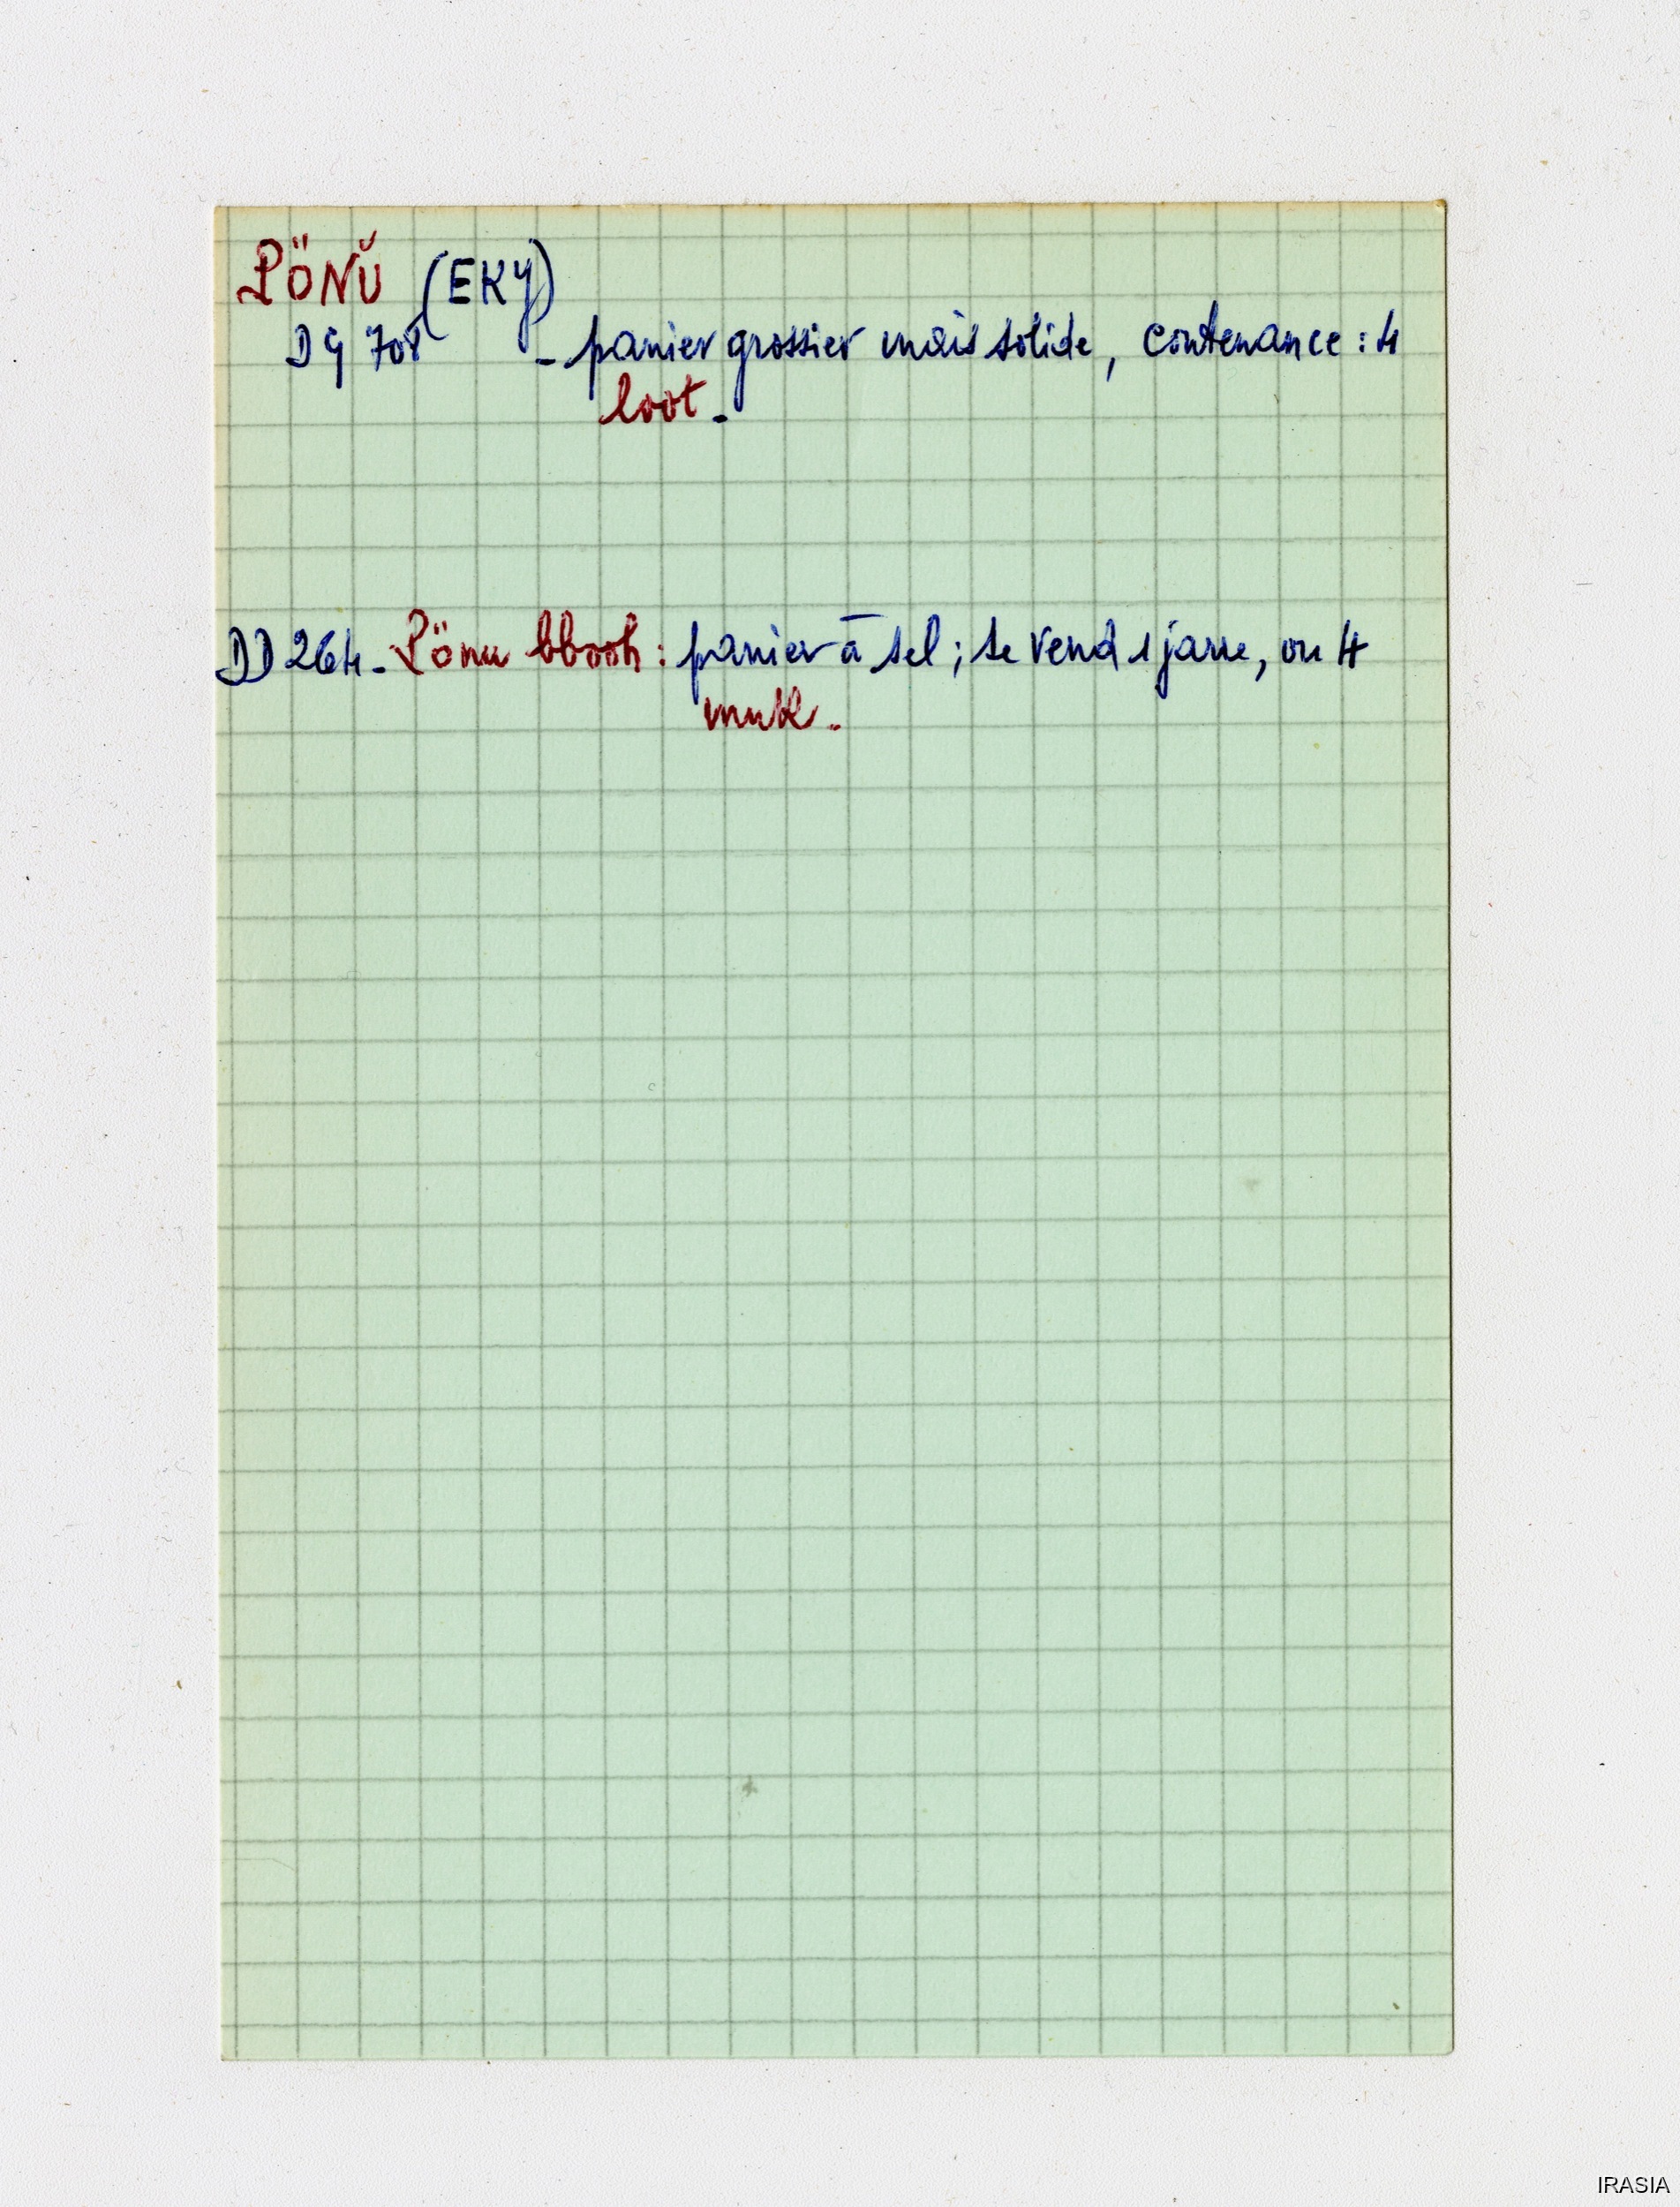 PÖNŬ (EKY)
DG 708 - panier grossier mais solide, contenance : 4
loot.
DD 264 - Pönu bbooh : panier à sel ; se vend 1 jarre, ou 4
muk.
IRASIA